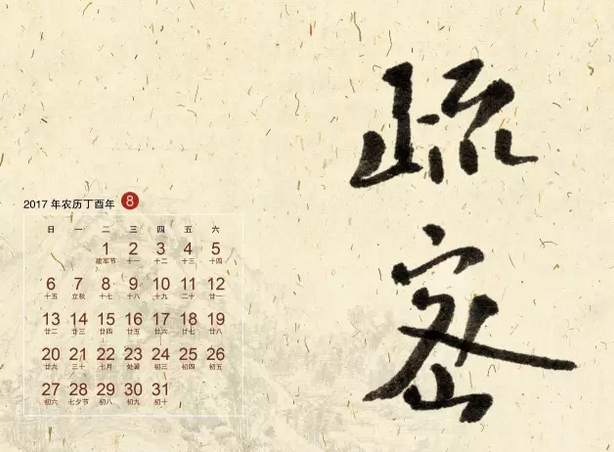 疏
密
2017 年农历丁酉年 8
日 一 二 三 四 五 六
1 2 3 4 5
建军节 十一 十二 十三 十四
6 7 8 9 10 11 12
十五 立秋 十七 十八 十九 二十 廿一
13 14 15 16 17 18 19
廿二 廿三 廿四 廿五 廿六 廿七 廿八
20 21 22 23 24 25 26
三十 七月 处暑 初三 初四 初五
27 28 29 30 31
初六 七夕节 初八 初九 初十